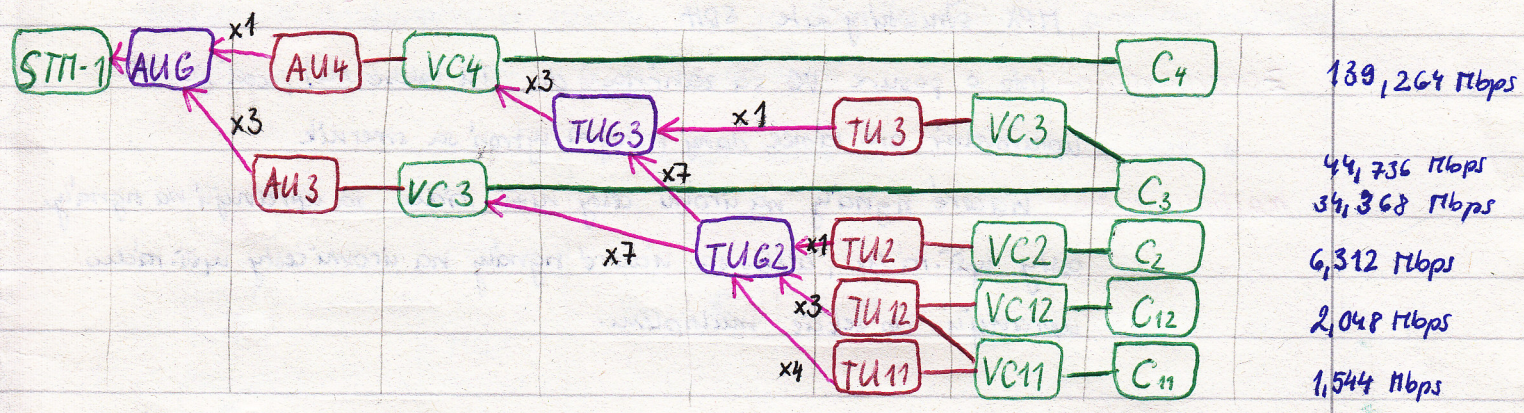 x1
STM-1 AUG AU4 VC4 C4 139,264 Mbps
x3
x3 TUG3 x1 TU3 VC3
44,736 Mbps
x7
AU3 VC3 C3 34,368 Mbps
x7 TUG2 x1 TU2 VC2 C2 6,312 Mbps
x3 TU12 VC12 C12 2,048 Mbps
x4 TU11 VC11 C11 1,544 Mbps